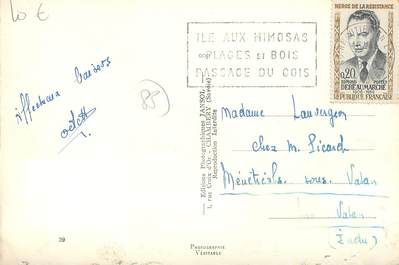 10 €
HEROS DE LA RESISTANCE
ILE AUX MIMOSAS
PLAGES ET BOIS
PASSAGE DU GOIS
0,20
POSTES
DEBEAUMARCHE
REPUBLIQUE FRANÇAISE
Affectueux baisers
85
Editions Photographiques JANSOL
1, rue Croix d'Or - CHAMBÉRY (Savoie)
Reproduction Interdite
Madame Lauvergeon
chez M. Picard
Ménétréols sous Vatan
Vatan
(Indre)
39
PHOTOGRAPHIE
VÉRITABLE